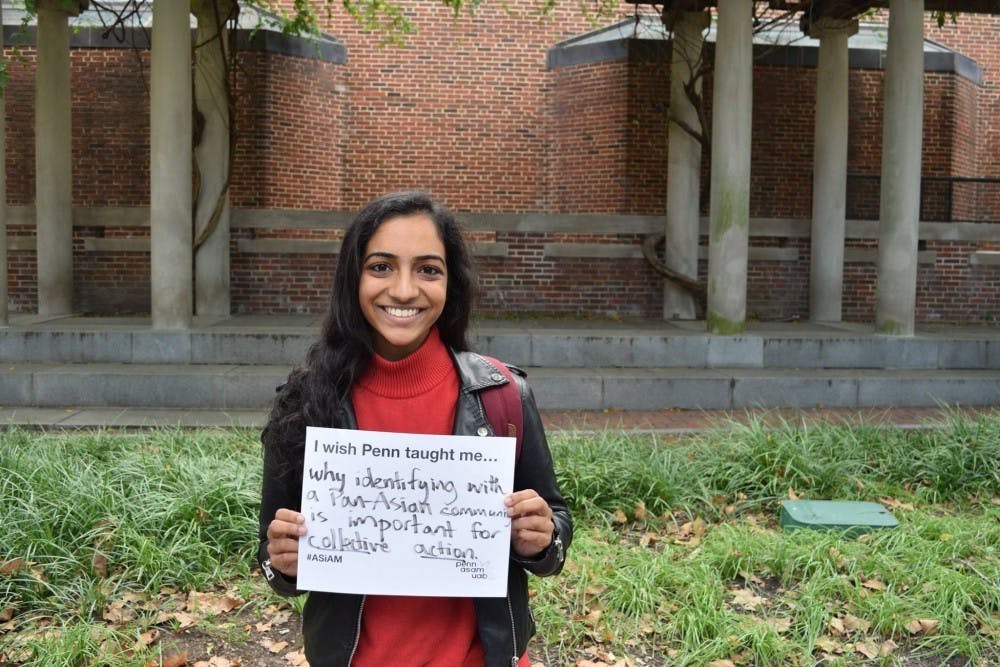 I wish Penn taught me...
why identifying with
a Pan-Asian communi
is important for
collective action.
#ASiAM
penn
asam
uab